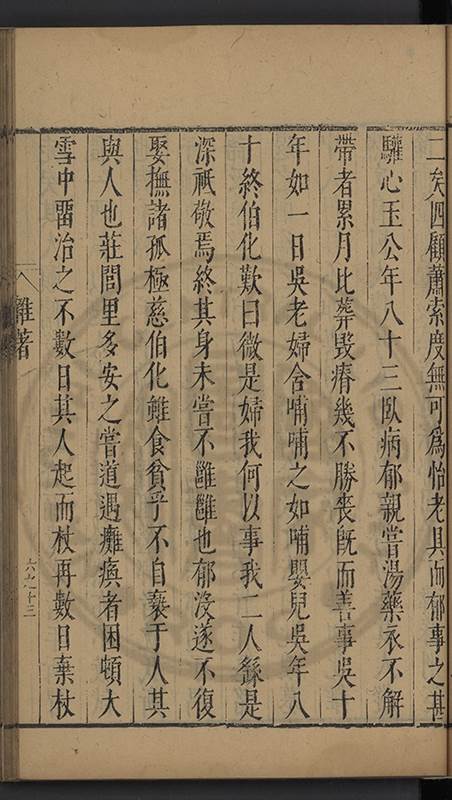 二矣四顧蕭索度無可為怡老具而郁事之甚
驩心玉公年八十三臥病郁親嘗湯藥衣不解
帶者累月比葬毀瘠幾不勝喪既而善事吳十
年如一日吳老婦舍哺哺之如哺嬰兒吳年八
十終伯化歎曰微是婦我何以事我二人繇是
深祇敬焉終其身未嘗不雝雝也郁沒遂不復
娶撫諸孤極慈伯化雖食貧乎不自褻于人其
與人也莊閭里多安之嘗道遇癱瘓者困頓大
雪中畱治之不數日其人起而杖再數日棄杖
雜著
六之十三